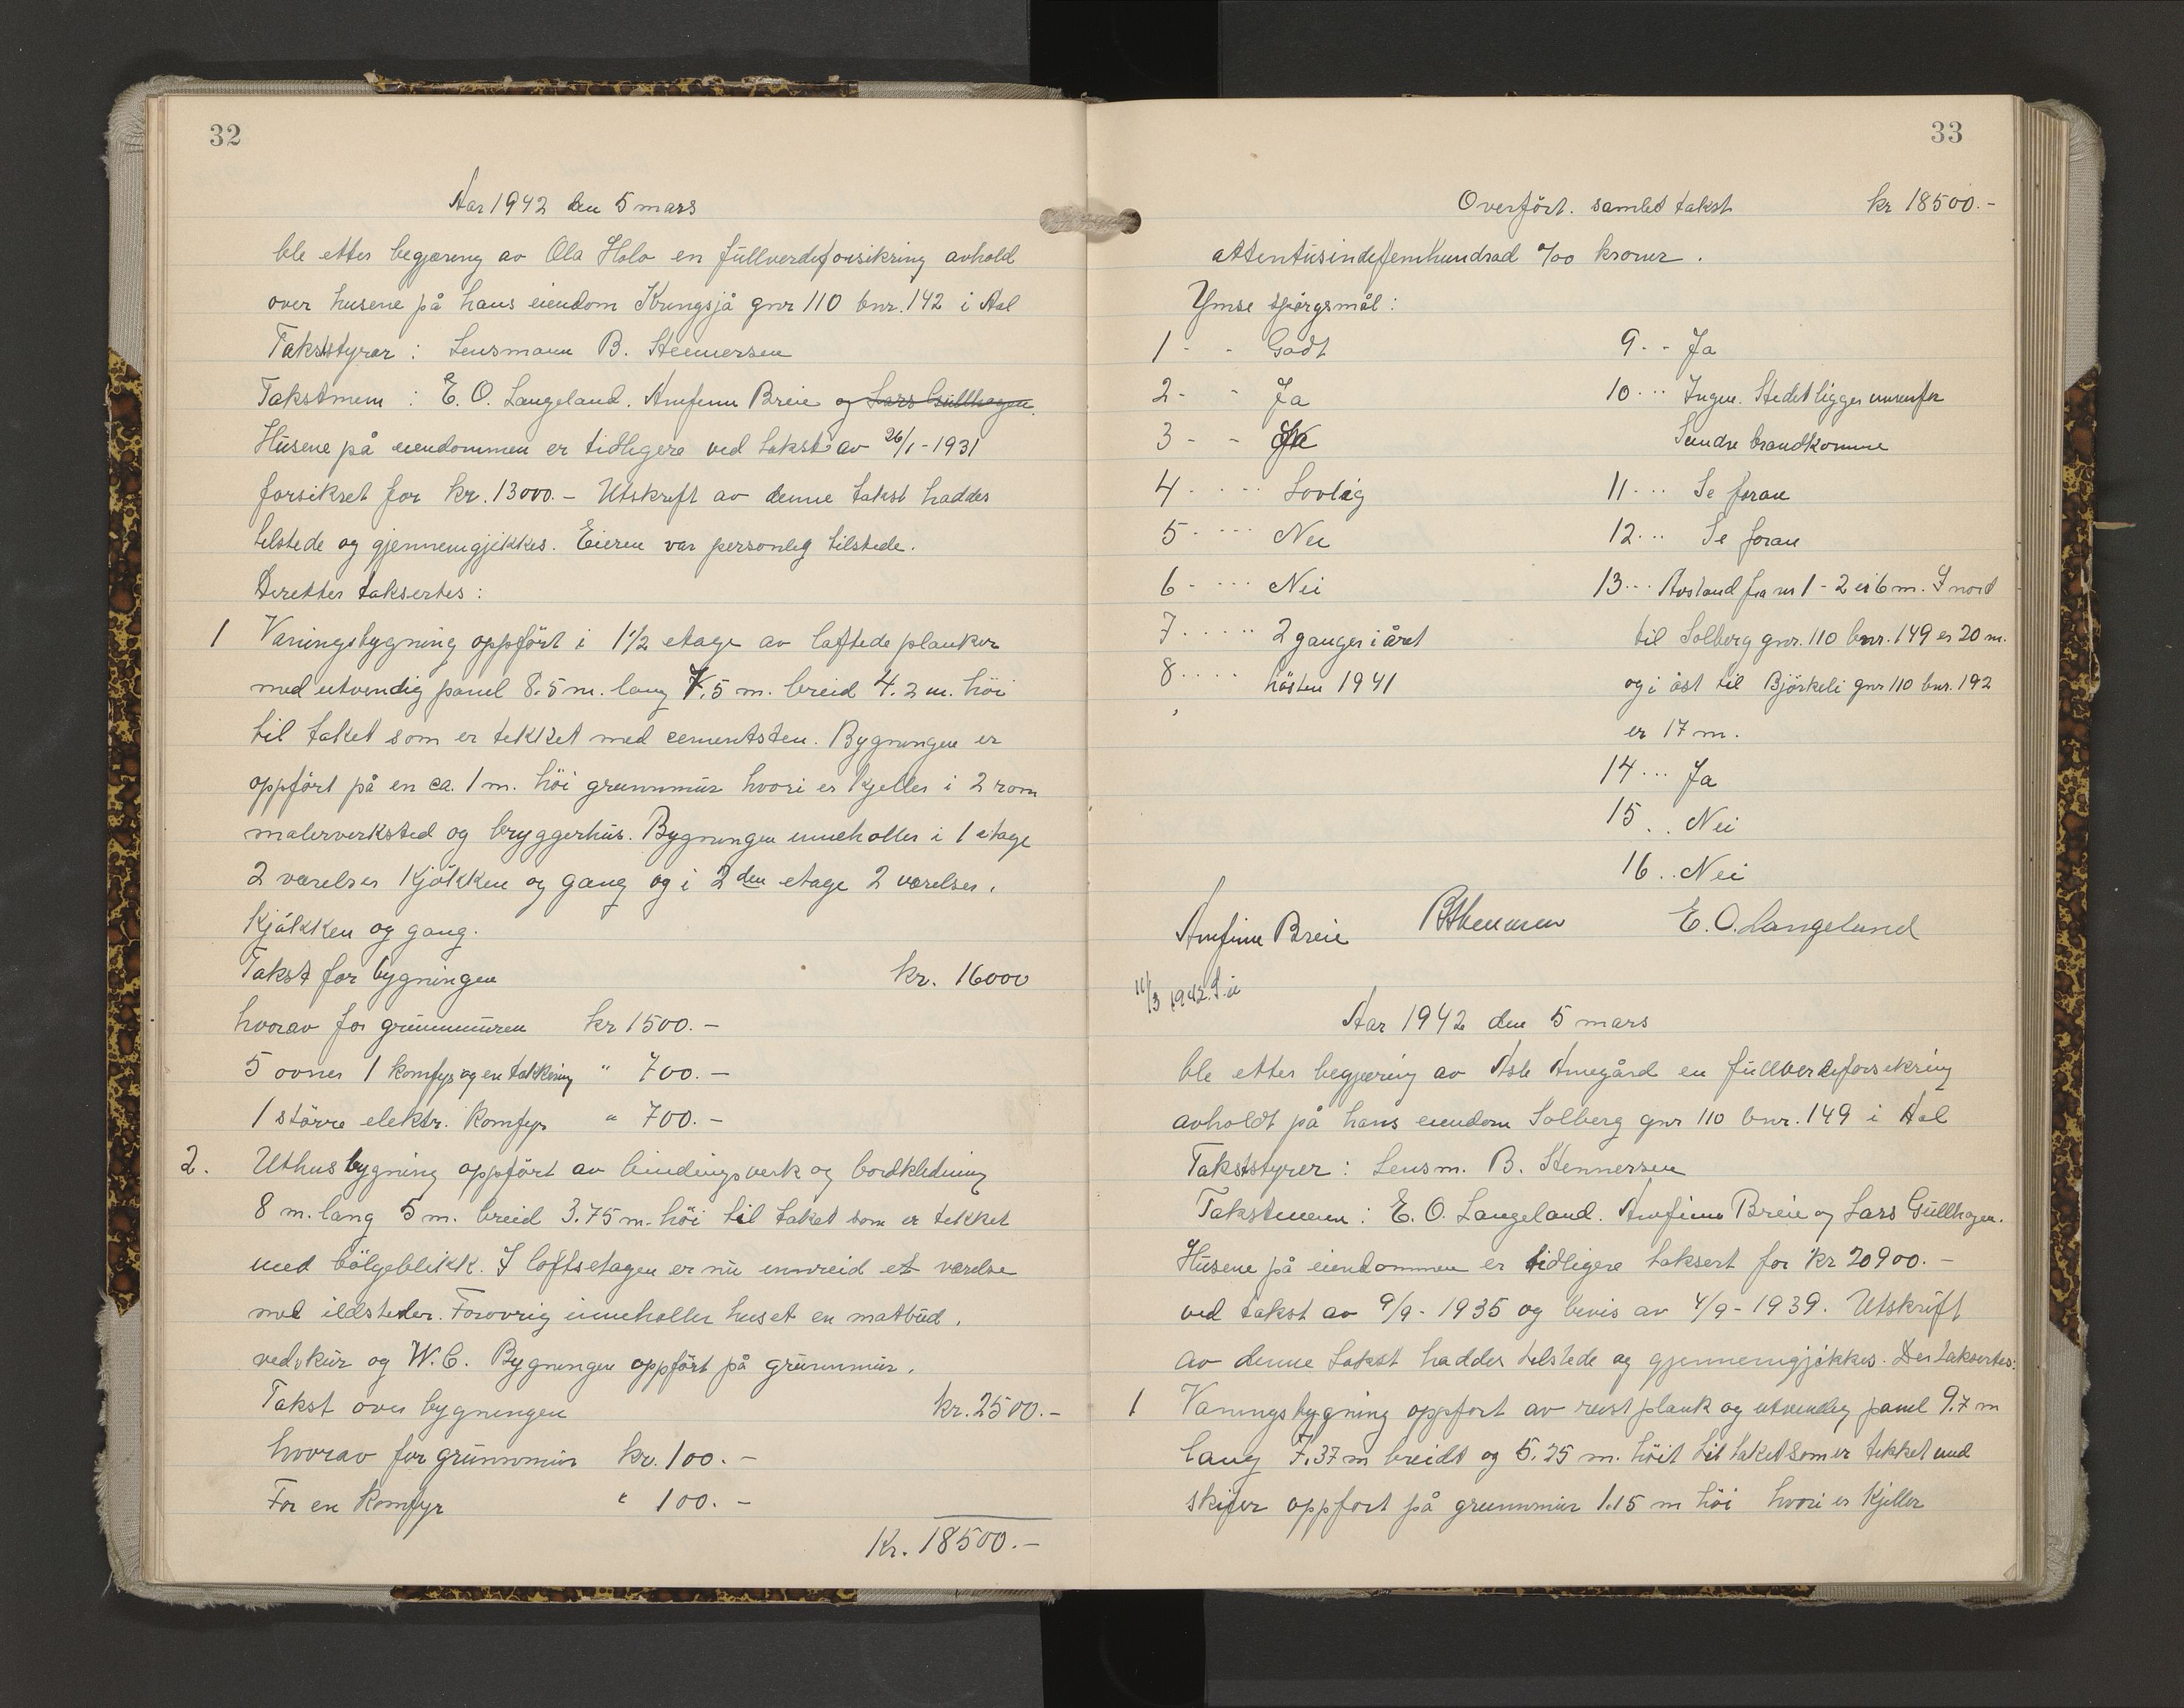 32
Aar 1942 den 5 mars
ble etter begjæring av Ola Holo en fullverdiforsikring avhold
over husene på hans eiendom Kringsjå gnr 110 bnr. 142 i Aal
Takststyrer : Lensmann B. Stennersen
Takstmenn : E. O. Langeland. Arnfinn Breie og Lars Gullhagen.
Husene på eiendommen er tidligere ved takst av 26/1 - 1931
forsikret for kr. 13000.- Utskrift av denne takst haddes
tilstede og gjennemgikkes. Eieren var personlig tilstede.
Deretter taksertes :
1 Vaningsbygning oppført i 1 1/2 etage av laftede planker
med utvendig panel 8.5 m. lang 7.5 m. breid 4.2 m. höi
til taket som er tekket med cementsten. Bygningen er
oppført på en ca. 1 m. höi grunnmur hvori er kjeller i 2 rom
malerverksted og bryggerhus. Bygningen inneholler i 1 etage
2 værelser kjökken og gang og i 2den etage 2 værelser.
kjökken og gang.
Takst for bygningen kr. 16000
hvorav for grunnmuren kr 1500.-
5 ovner 1 komfyr og en takkering " 700.-
1 större elektr. komfyr " 700.-
2. Uthusbygning oppfört av bindingsverk og bordkledning
8 m. lang 5 m. breid 3.75 m. höi til taket som er tekket
med bölgeblikk. I loftsetagen er nu innreid et værelse
med ildsteder. Forovrig inneholler huset en matbud.
vedskur og W.C. Bygningen oppfört på grunnmur.
Takst over bygningen kr. 2500.-
hvorav for grunnmur kr. 100.-
For en komfyr " 100.-
Kr. 18500.-
33
Overfört. samlet takst kr 18500.-
attentusindefemhundrad 0/00 kroner.
Ymse spörgsmål :
1 - - Godt
2 - - Ja
3 - - Ja
4 .... Lovlig
5 .... Nei
6 .... Nei
7 ..... 2 ganger i året
8 .... hösten 1941
9 - - Ja
10 ... Ingen. Stedet ligger innenfor
Sundre brandkomune
11 ... Se foran
12 ... Se foran
13 ... Avstand fra nr 1 - 2 er 6 m. I nord
til Solberg gnr. 110 bnr. 149 er 20 m.
og i öst til Björkeli gnr 110 bnr. 192
er 17 m.
14 ... Ja
15 .. Nei
16 .. Nei
Arnfinn Breie B Stennersen E. O. Langeland
11/3 1942.
Aar 1942 den 5 mars
ble etter begjæring av Asle Arnegård en fullverdiforsikring
avholdt på hans eiendom Solberg gnr 110 bnr. 149 i Aal
Takststyrer : Lensm. B. Stennersen
Takstmenn : E. O. Langeland. Arnfinn Breie og Lars Gullhagen.
Husene på eiendommen er tidligere taksert for kr 20900.-
ved takst av 9/9 - 1935 og bevis av 4/9 - 1939. Utskrift
av denne takst haddes tilstede og gjennemgikkes. Der taksertes:
1 Vaningsbygning oppfort av reist plank og utvendig panel 9.7 m
lang 7.37 m breidt og 5.25 m. höit til taket som er tekket med
skifer oppfort på grunnmur 1.15 m höi hvori er kjeller